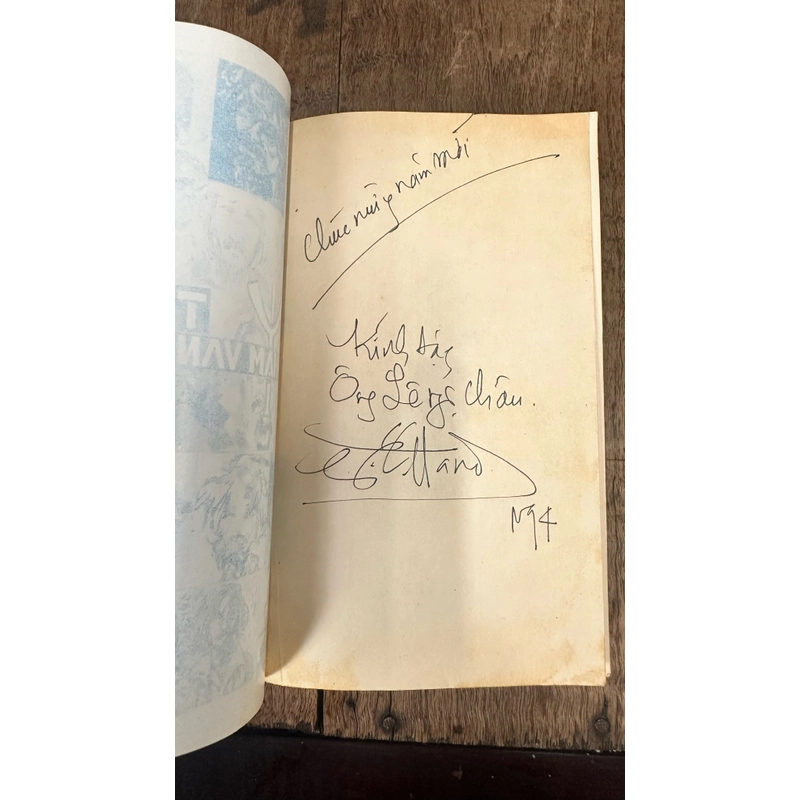 Chúc mừng năm mới
Kính tặng
Ông Lê ngọc Châu.
N94
T
VĂN